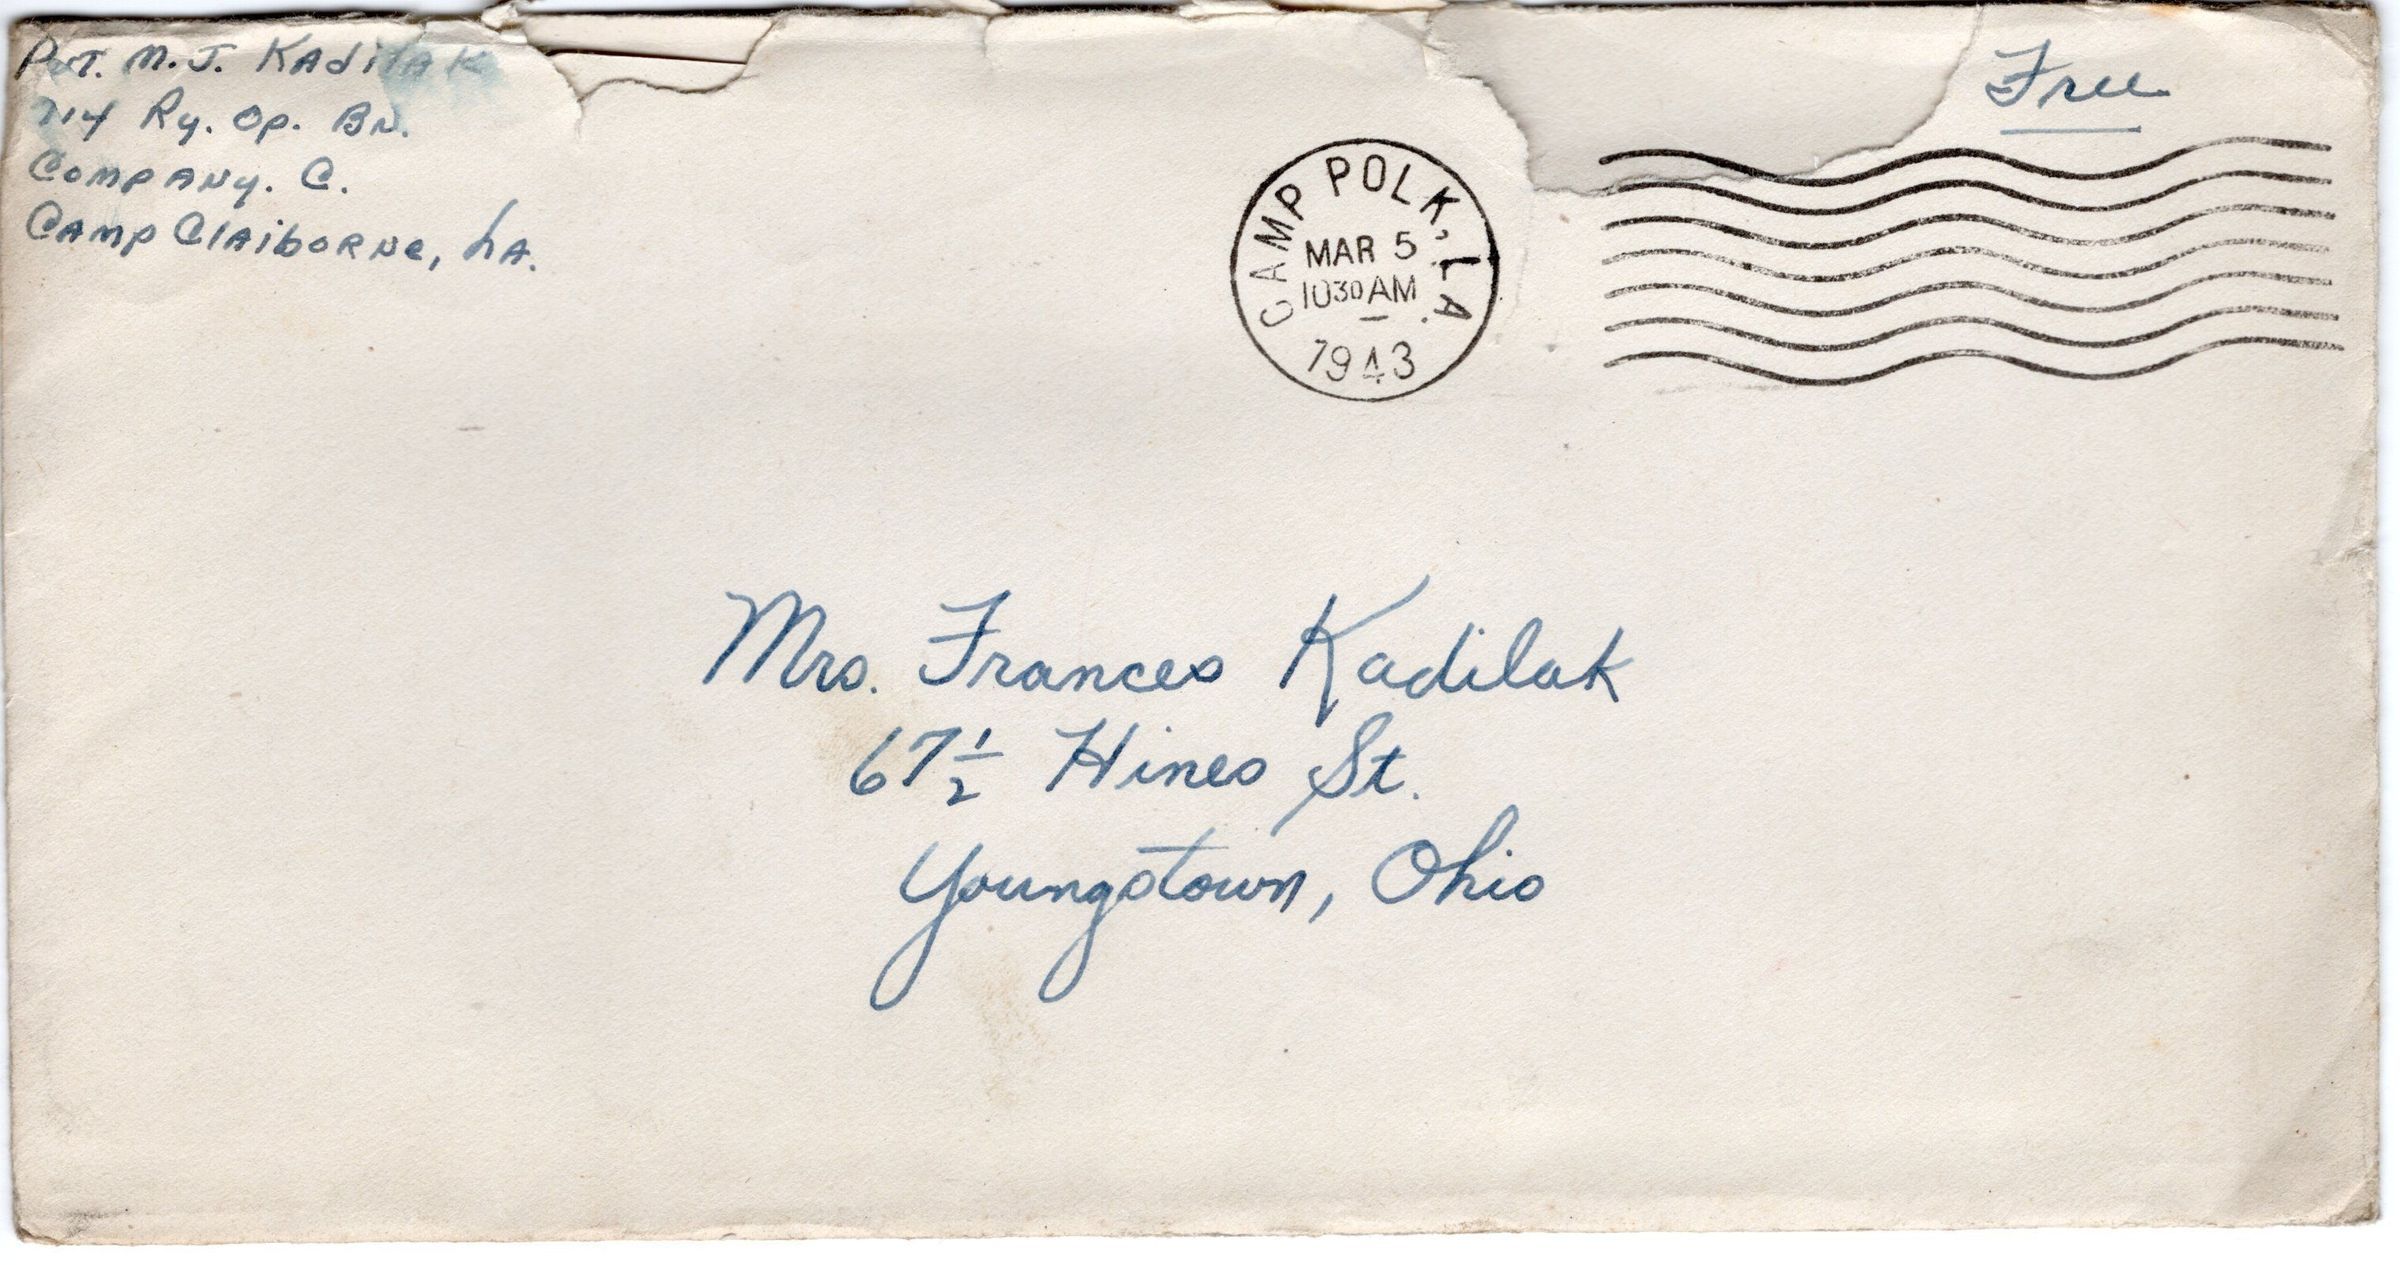 Pvt. M.J. Kadilak
714 Ry. Op. Bn.
Company. C.
Camp Claiborne, La.
Free
CAMP POLK, LA.
MAR 5
1030 AM
1943
Mrs. Frances Kadilak
67 1/2 Hines St.
Youngstown, Ohio